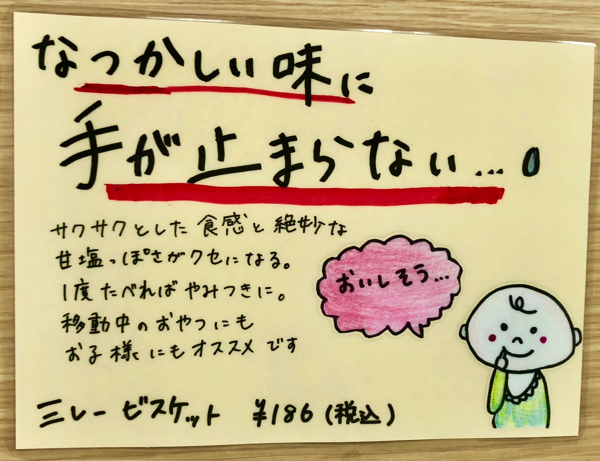 なつかしい味に
手が止まらない...
サクサクとした食感と絶妙な
甘塩っぽさがクセになる。
1度たべればやみつきに。
移動中のおやつにも
お子様にもオススメです
おいしそう...
ミレービスケット ¥186(税込)